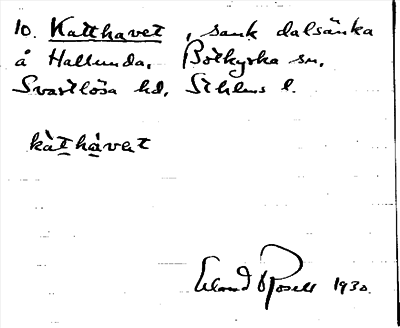 10. Katthavet, sank dalsänka
å Hallunda, Botkyrka sn,
Svartlösa hd, Sthlms l.
kàthàvat
Erland Rosell 1930.